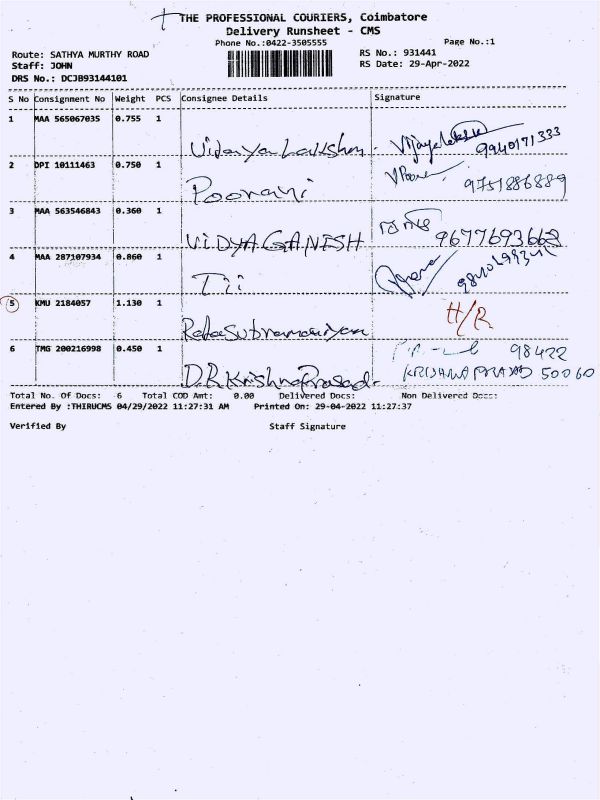 THE PROFESSIONAL COURIERS, Coimbatore
Delivery Runsheet - CMS
Phone No.:0422-3505555 Page No.:1
Route: SATHYA MURTHY ROAD RS No.: 931441
Staff: JOHN RS Date: 29-Apr-2022
DRS No.: DCJB93144101
S No Consignment No Weight PCS Consignee Details Signature
1 MAA 565067035 0.755 1
Vidaya Lakshmi 9940171333
2 DPI 10111463 0.750 1
Poorani 9751886889
3 MAA 563546843 0.360 1
ViDYA GANESH 9677693668
4 MAA 287107934 0.860 1
Tii
5 KMU 2184057 1.130 1 H/R
6 TMG 200216998 0.450 1 98422
D.R Krishna Prasad KRISHNA PRASAD 50060
Total No. Of Docs: 6 Total COD Amt: 0.00 Delivered Docs: Non Delivered Docs:
Entered By :THIRUCMS 04/29/2022 11:27:31 AM Printed On: 29-04-2022 11:27:37
Verified By Staff Signature